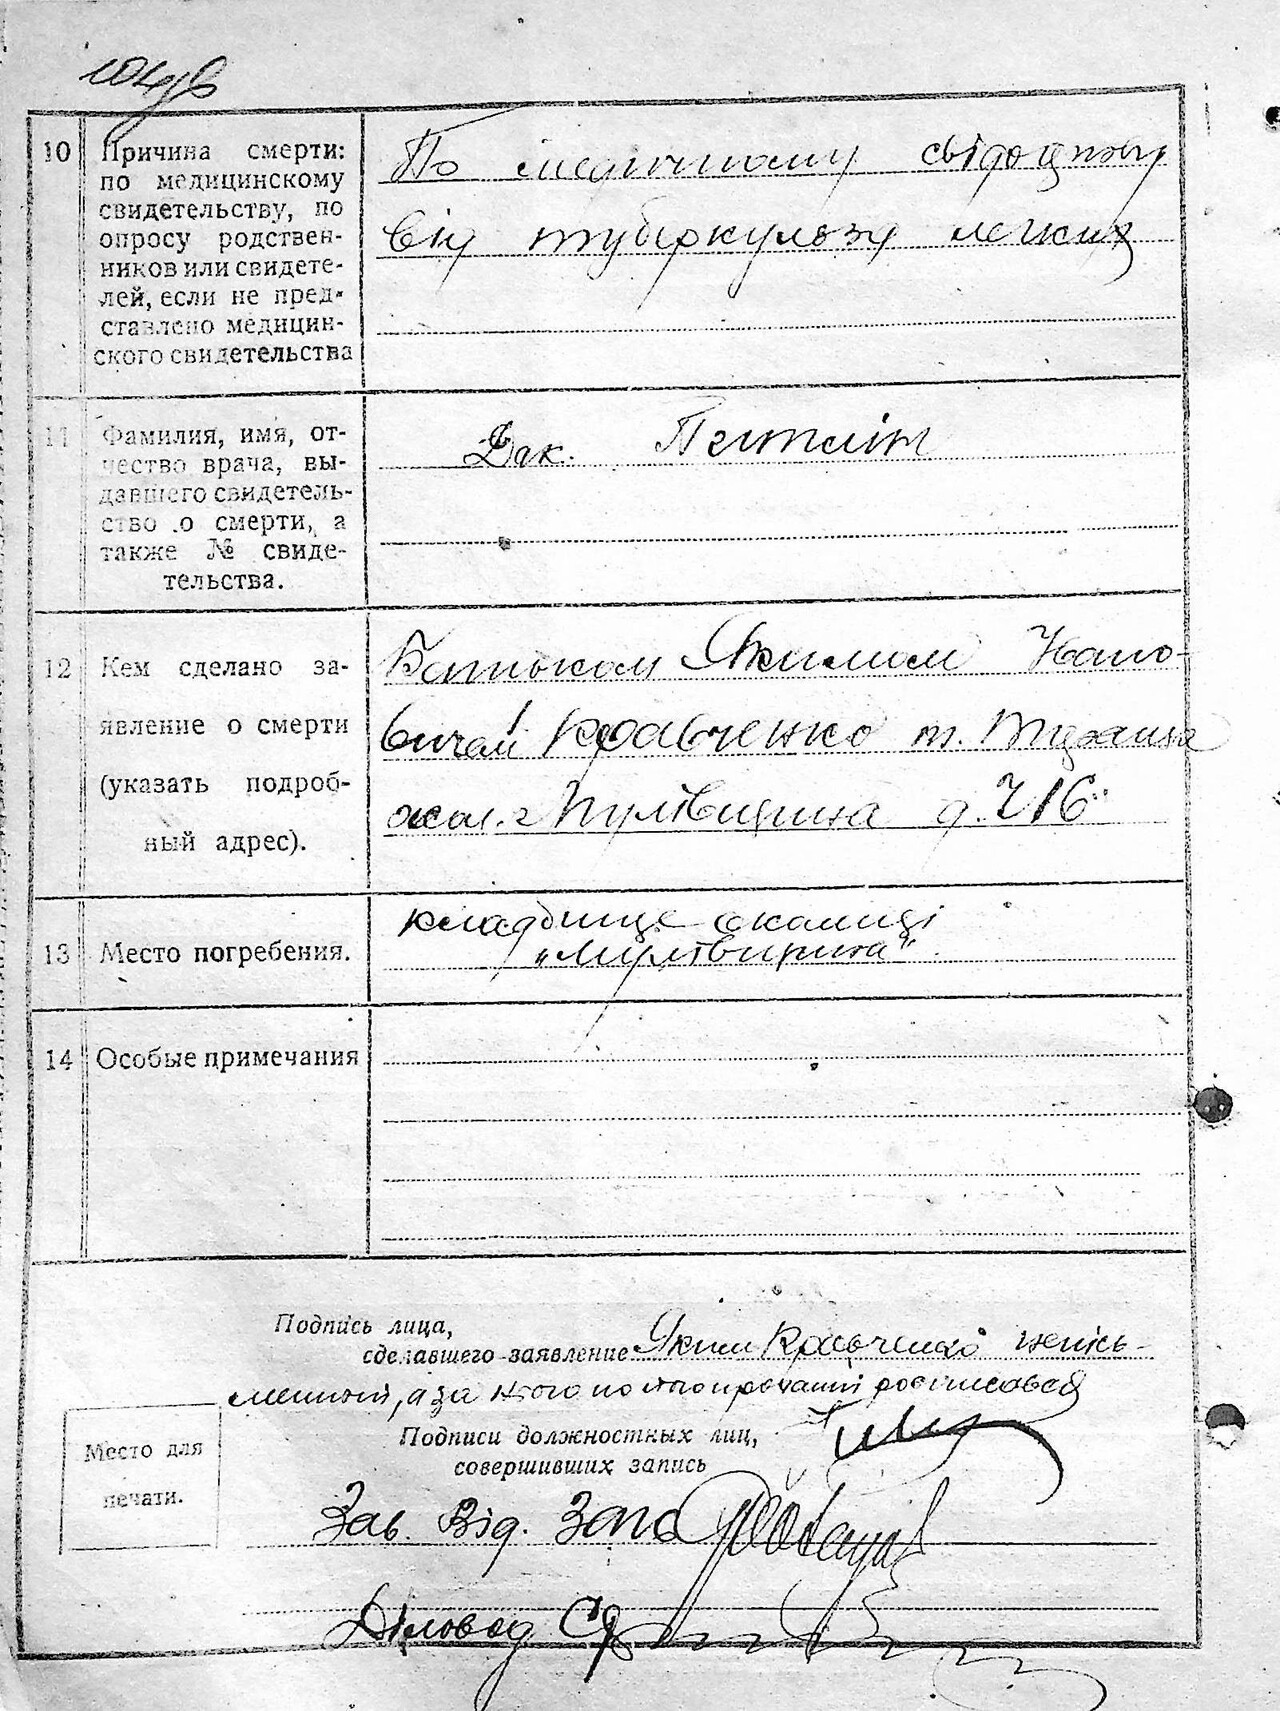 10 Причина смерти:
по медицинскому
свидетельству, по
опросу родствен-
ников или свидете-
лей, если не пред-
ставлено медицин-
ского свидетельства
По медичному свідоцтву
від туберкульозу легких
11 Фамилия, имя, от-
чество врача, вы-
давшего свидетель-
ство о смерти, а
также № свиде-
тельства.
12 Кем сделано за-
явление о смерти
(указать подроб-
ный адрес).
Батьком Якимом Івано-
вичем Кравченко м.
д. 716
13 Место погребения.
кладбище околиці
14 Особые примечания
Подпись лица,
сделавшего заявление Яким Кравченко непись-
менный, а за нього по його проханні розписався
Подписи должностных лиц,
совершивших запись
Место для
печати.
Зав. Від. Загс
Діловод